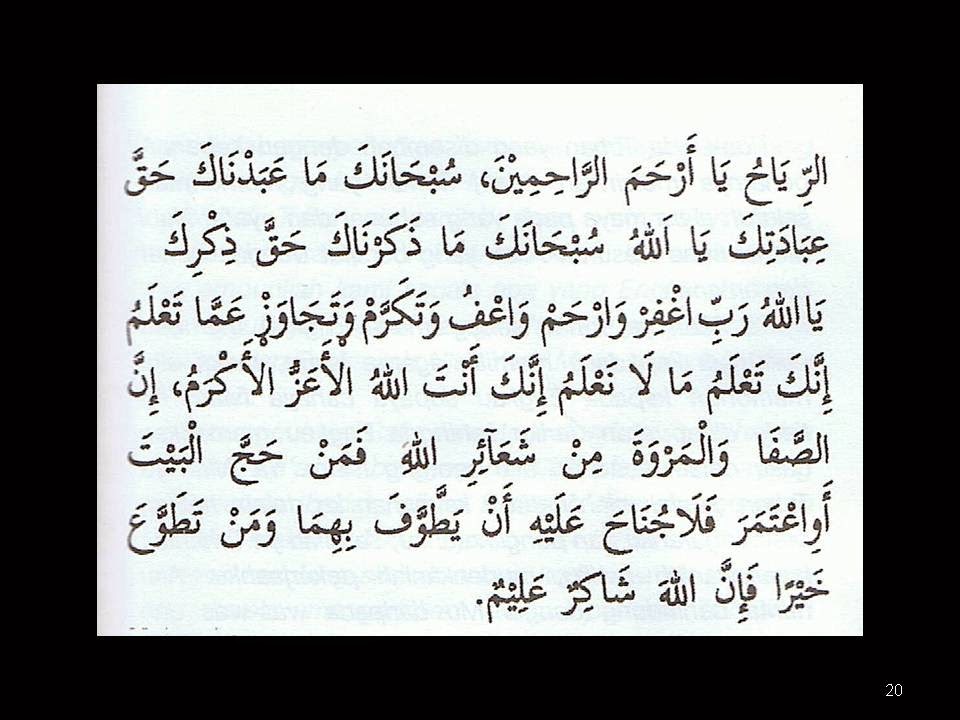 الرِّيَاحُ يَا أَرْحَمَ الرَّاحِمِيْنَ، سُبْحَانَكَ مَا عَبَدْنَاكَ حَقَّ
عِبَادَتِكَ يَا اَللهُ سُبْحَانَكَ مَا ذَكَرْنَاكَ حَقَّ ذِكْرِكَ
يَا اَللهُ رَبِّ اغْفِرْ وَارْحَمْ وَاعْفُ وَتَكَرَّمْ وَتَجَاوَزْ عَمَّا تَعْلَمُ
إِنَّكَ تَعْلَمُ مَا لَا نَعْلَمُ إِنَّكَ أَنْتَ اللهُ الْأَعَزُّ الْأَكْرَمُ، إِنَّ
الصَّفَا وَالْمَرْوَةَ مِنْ شَعَآئِرِ اللهِ فَمَنْ حَجَّ الْبَيْتَ
أَوِاعْتَمَرَ فَلَاجُنَاحَ عَلَيْهِ أَنْ يَطَّوَّفَ بِهِمَا وَمَنْ تَطَوَّعَ
خَيْرًا فَإِنَّ اللهَ شَاكِرٌ عَلِيْمٌ.
20